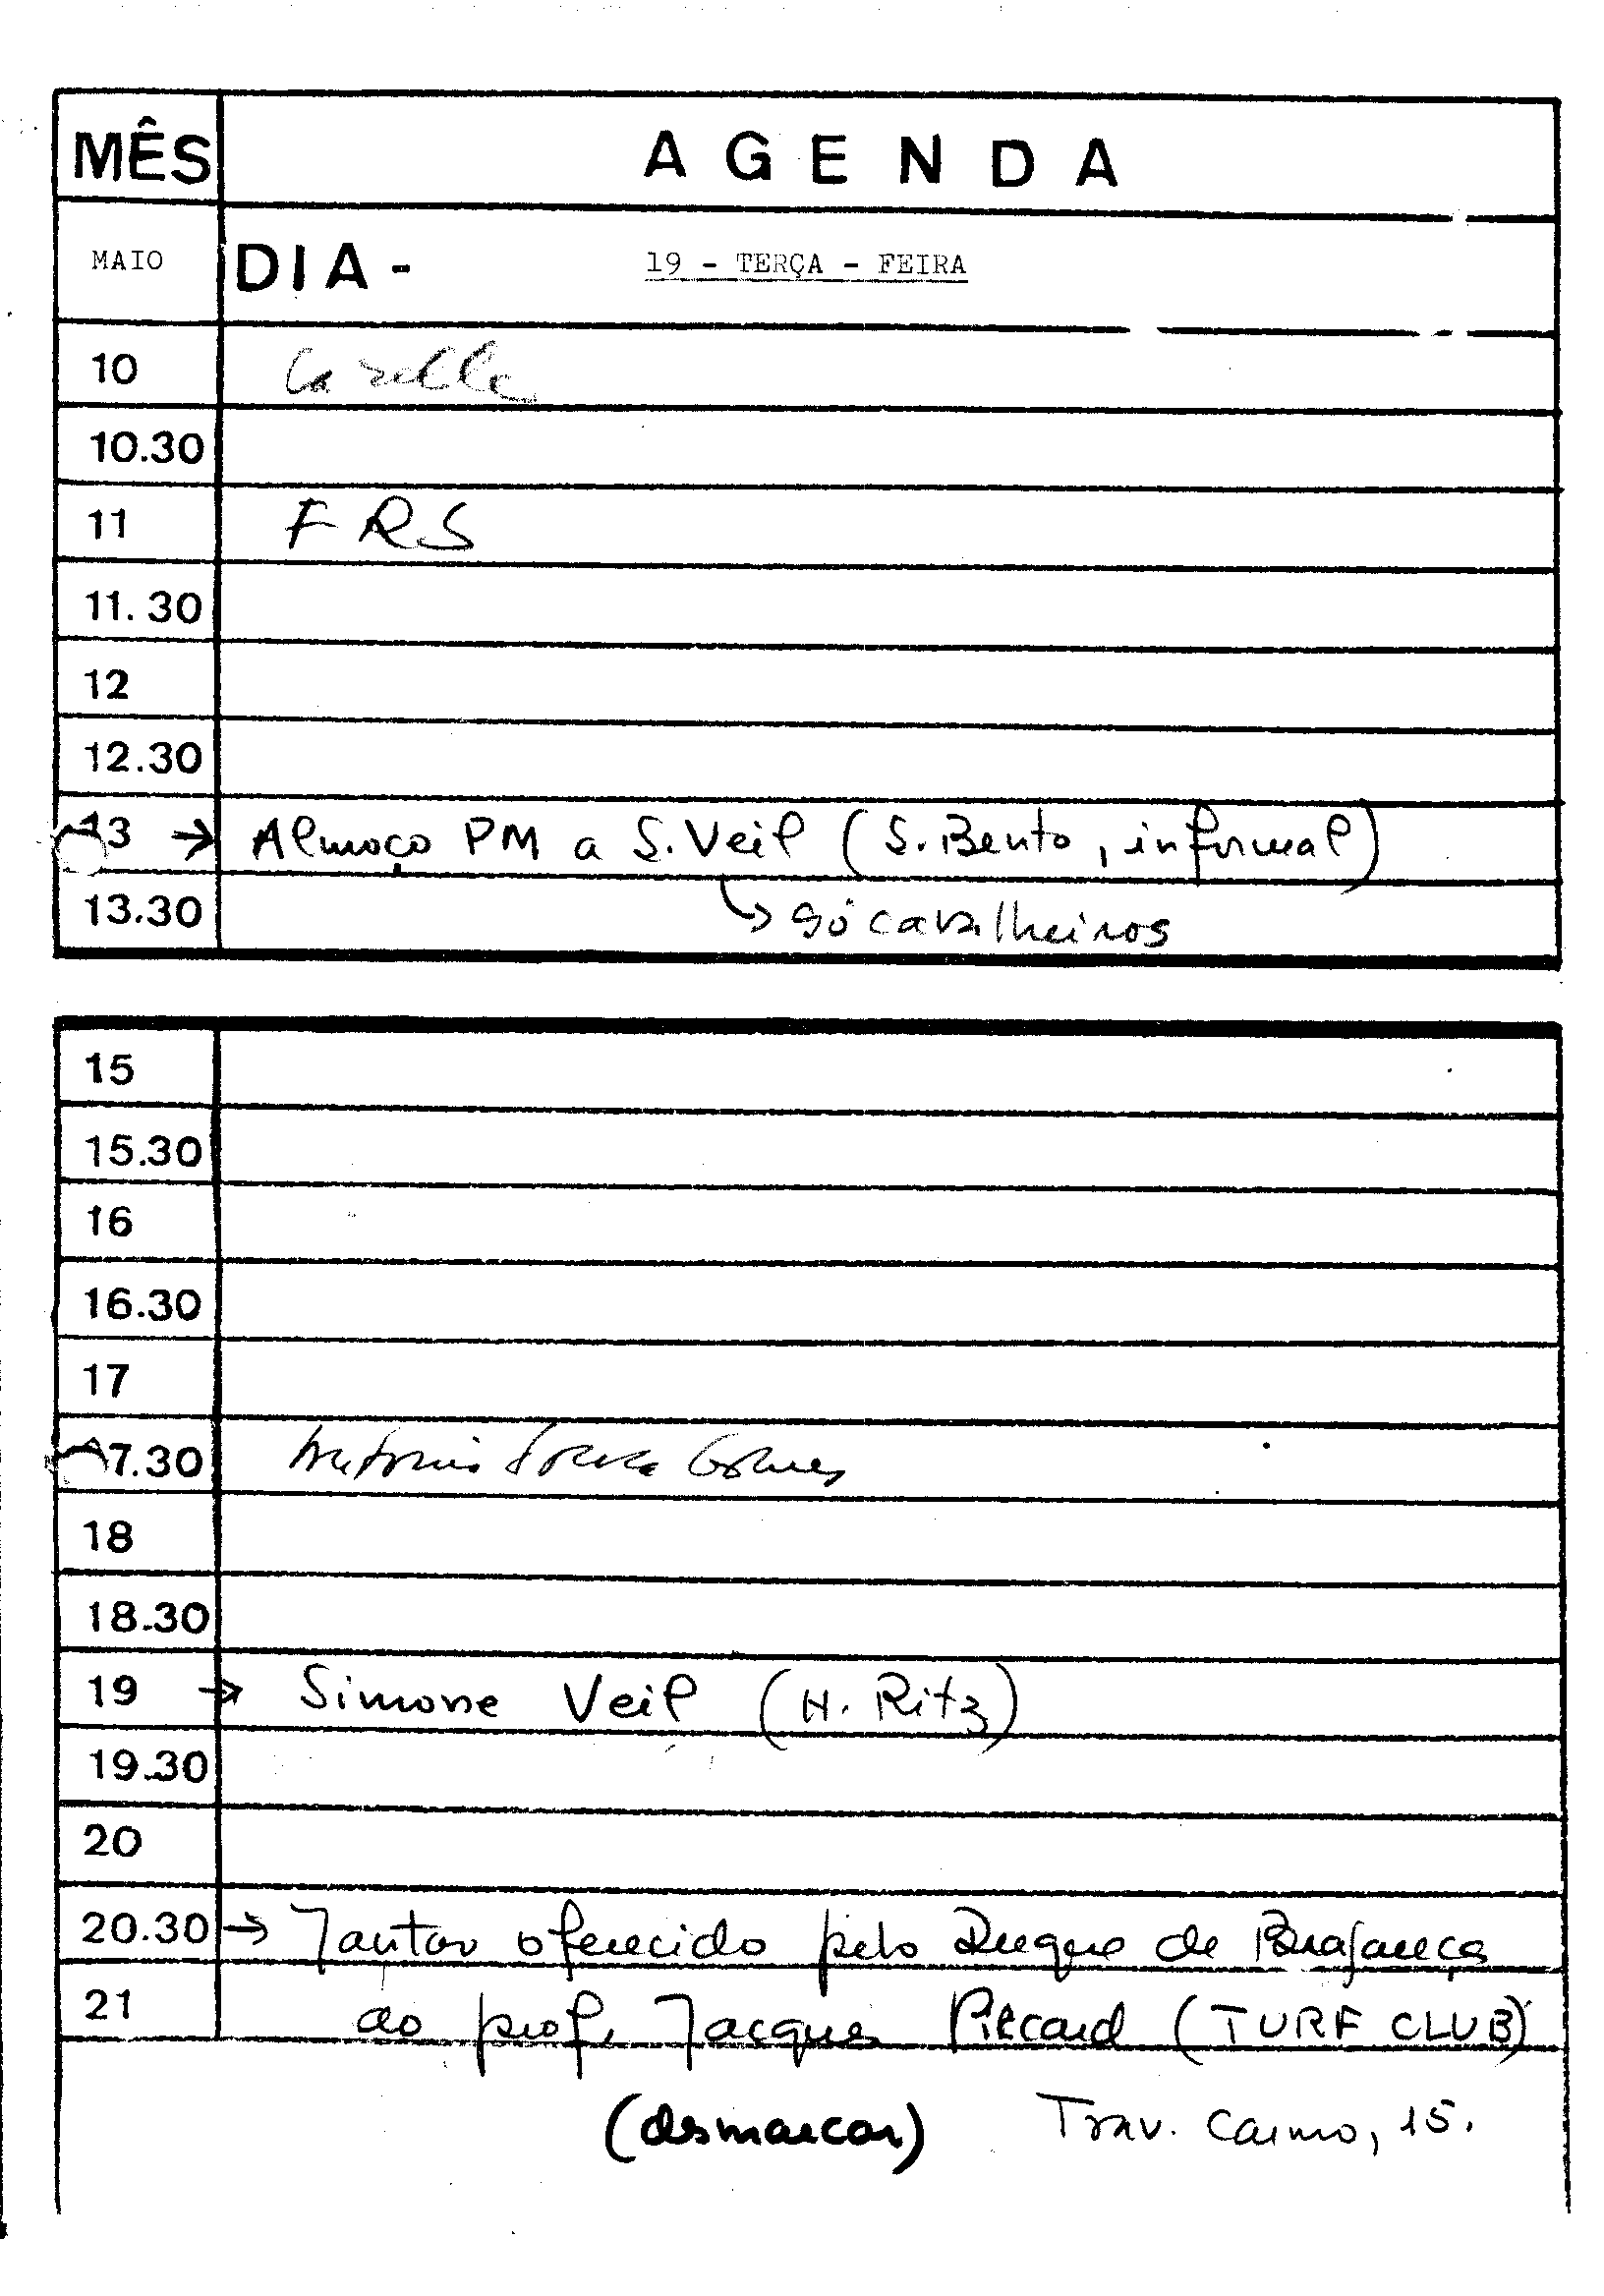 MÊS AGENDA
MAIO DIA - 19 - TERÇA - FEIRA
10
10.30
11 FRS
11.30
12
12.30
13 → Almoço PM a S. Veil (S. Bento, informal)
13.30 ↳ só cavalheiros
15
15.30
16
16.30
17
17.30 António Sousa Gomes
18
18.30
19 → Simone Veil (H. Ritz)
19.30
20
20.30 → Jantar oferecido pelo Duque de Bragança
21 ao prof. Jacques Piccard (TURF CLUB)
(desmarcar) Trav. Carmo, 15.